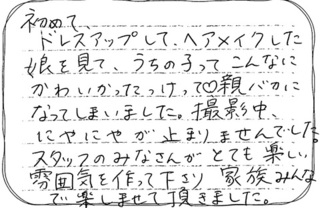 初めて、
ドレスアップして、ヘアメイクした
娘を見て、うちの子ってこんなに
かわいかったっけって♡親バカに
なってしまいました。撮影中、
にやにやが止まりませんでした。
スタッフのみなさんがとても楽しい
雰囲気を作って下さり家族みんな
で楽しませて頂きました。